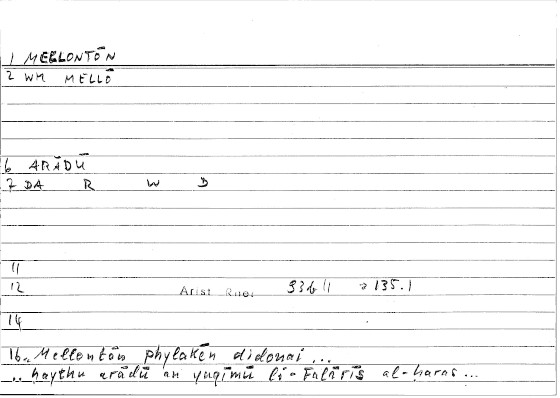 1 MELLONTŌN
2 WM MELLŌ
6 ARĀDŪ
7 DA R W D
11
12 Arist Rhet 93b11 135.1
14
16. Mellontōn phylakēn didonai ...
.. ḥaythu arādū an yuqīmū li-Falārīs al-ḥaras ...